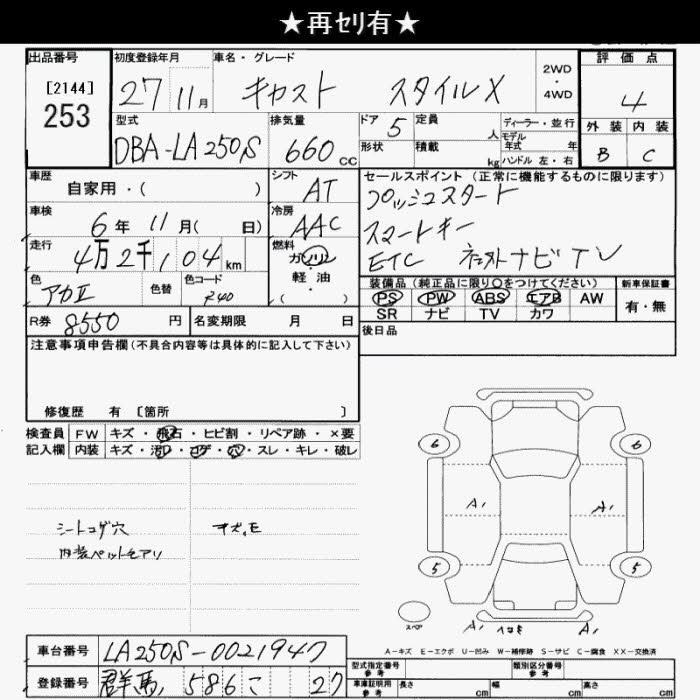 ★再セリ有★
出品番号
[2144]
253
初度登録年月
27 11月
車名・グレード
キャスト スタイルX
2WD
・
4WD
評価点
4
外装 内装
B C
型式
DBA-LA250S
排気量
660cc
ドア 5
形状
定員 人
積載 kg
ディーラー・並行
モデル年式 年
ハンドル 左・右
車歴
自家用・( )
シフト
AT
車検
6年 11月( 日)
冷房
AAC
走行
4万2千104km
燃料
ガソリン
軽・油
・( )
色
色替
色コード
R40
セールスポイント(正常に機能するものに限ります)
プッシュスタート
スマートキー
ETC 社外ナビTV
装備品(純正品に限り○をつけてください)
PS PW ABS エアB AW
SR ナビ TV カワ
新車保証書
有・無
R券 8550円
名変期限 月 日
後日品
注意事項申告欄(不具合内容等は具体的に記入して下さい)
修復歴 有 [箇所 ]
検査員
記入欄
FW キズ・飛石・ヒビ割・リペア跡・×要
内装 キズ・汚れ・コゲ・穴・スレ・キレ・破レ
シートコゲ穴
内装ペットモアリ
6 6
A1 A1
5 5
スペア
A1 A1
A-キズ E-エクボ U-凹み W-補修跡 S-サビ C-腐食 XX-交換済
車台番号
LA250S-0021947
登録番号
群馬 586こ 27
型式指定番号
参考
類別区分番号
参考
車庫証明用
参考
長さ cm 幅 cm 高さ cm